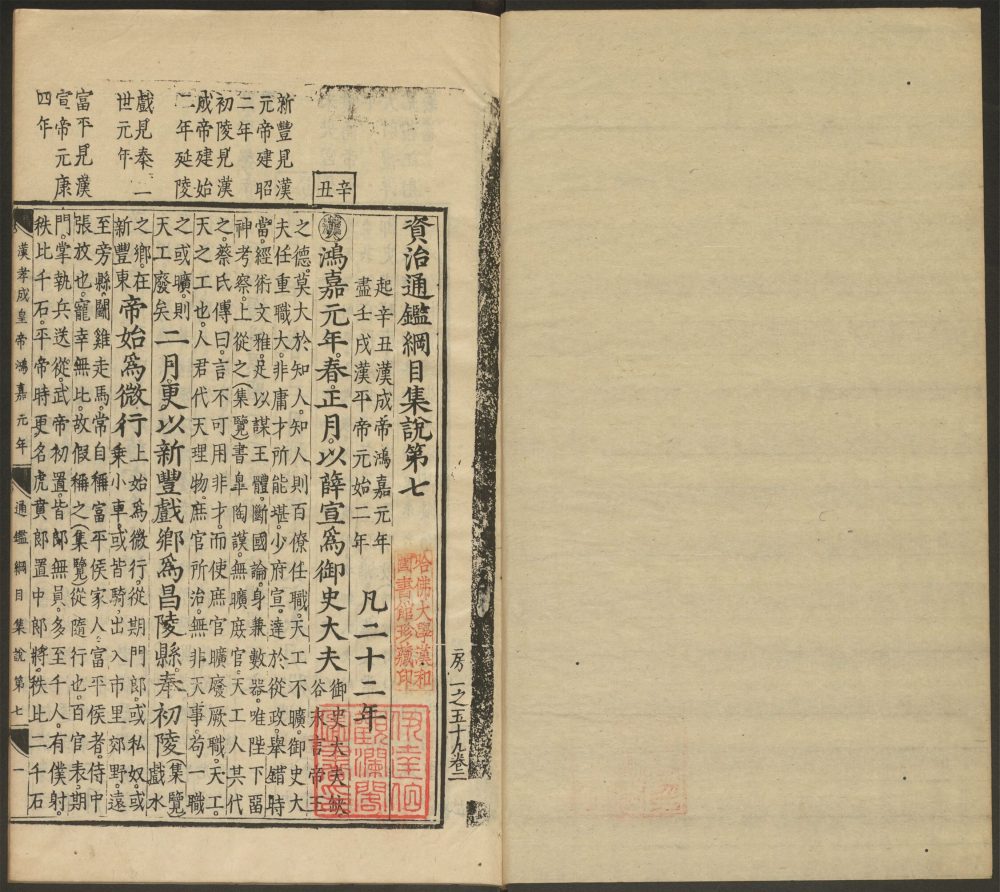 資治通鑑綱目集說第七
起辛丑漢成帝鴻嘉元年
盡壬戌漢平帝元始二年
凡二十二年
辛丑
漢
鴻嘉元年春正月以薛宣爲御史大夫
御史大夫缺
谷永言帝王
之德莫大於知人知人則百僚任職天工不曠御史大
夫任重職大非庸才所能堪少府宣達於從政舉錯時
當經術文雅足以謀王體斷國論身兼數器唯陛下留
神考察上從之(集覽)書皐陶謨無曠庶官天工人其代
之蔡氏傳曰言不可用非才而使庶官曠廢厥職天工
天之工也人君代天理物庶官所治無非天事苟一職
之或曠則
天工廢矣
二月更以新豐戲鄉爲昌陵縣奉初陵
(集覽)
戲水
之鄉在
新豐東
帝始爲微行
上始爲微行從期門郎或私奴或
乘小車或皆騎出入市里郊野遠
至旁縣鬬雞走馬常自稱富平侯家人富平侯者侍中
張放也寵幸無比故假稱之(集覽)從隨行也百官表期
門掌執兵送從武帝初置皆郎無員多至千人有僕射
秩比千石平帝時更名虎賁郎置中郎將秩比二千石
新豐見漢
元帝建昭
二年
初陵見漢
成帝建始
二年延陵
戲見秦二
世元年
富平見漢
宣帝元康
四年
漢孝成皇帝鴻嘉元年
通鑑綱目集說第七
一
房一之五十九卷二
哈佛大學漢和
圖書館珍藏印
伊達伯
觀瀾閣